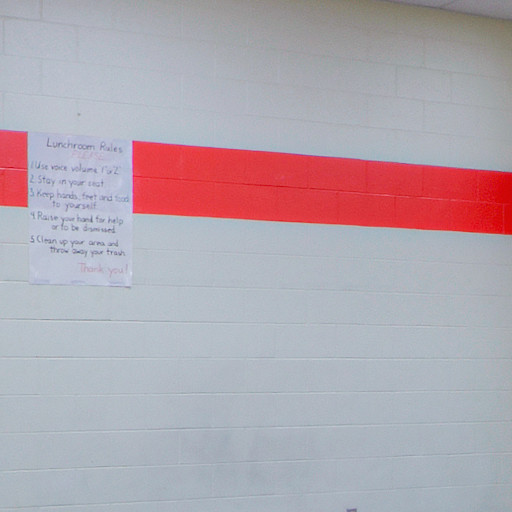 Lunchroom Rules
1. Use voice volume 1 or 2
2. Stay in your seat.
3. Keep hands, feet and food
to yourself.
4. Raise your hand for help
or to be dismissed.
5. Clean up your area and
throw away your trash.
Thank you!